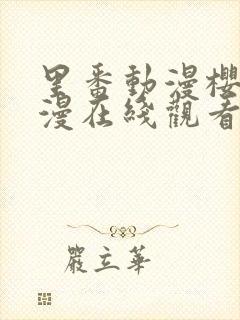 里番動漫櫻
漫在綫觀看
嚴立華